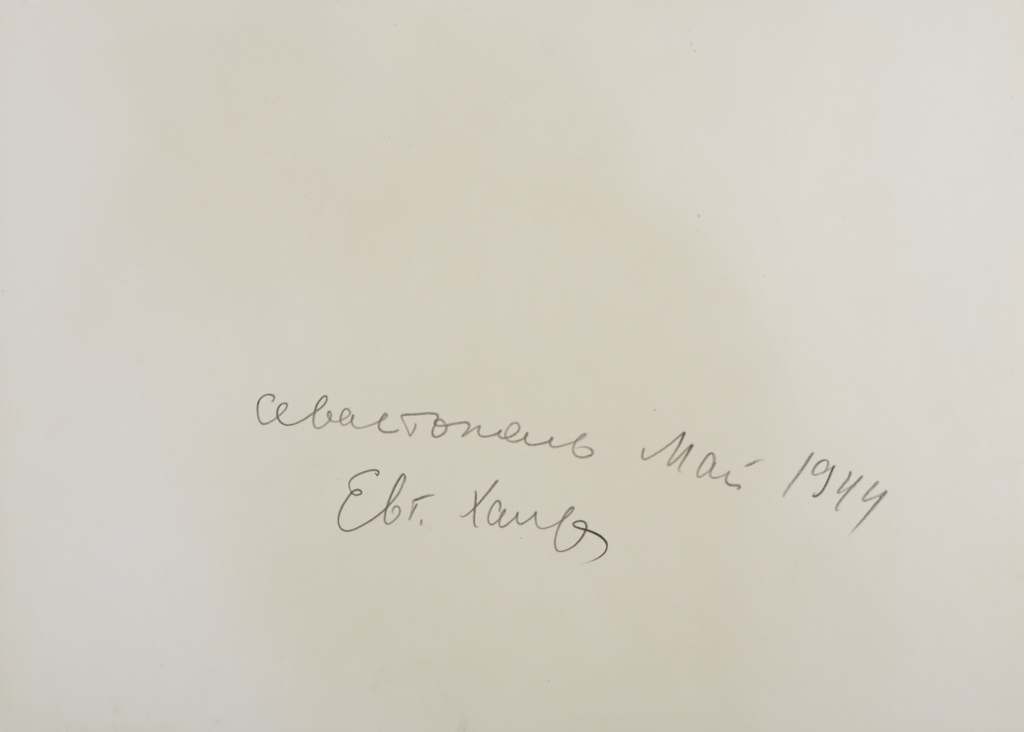 Севастополь Май 1944
Евг. Халдей